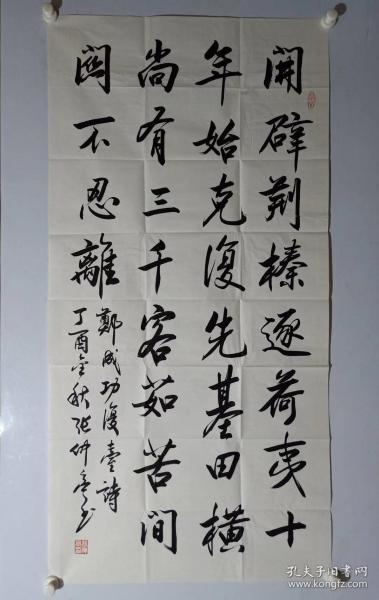 開辟荊榛逐荷夷十
年始克復先基田橫
尚有三千客茹苦間
關不忍離
鄭成功復臺詩
丁酉金秋张仲亭书
孔夫子旧书网